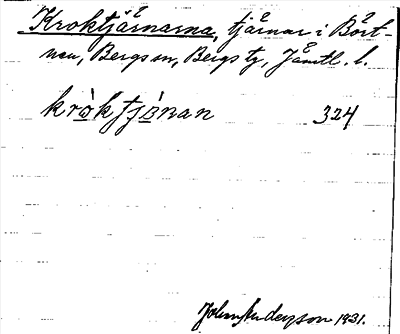 Kroktjärnarna, tjärnar i Bört-
nan, Bergs sn, Bergs tg, Jämtl. l.
krὸktjὸnan 324
John Anderson 1931.